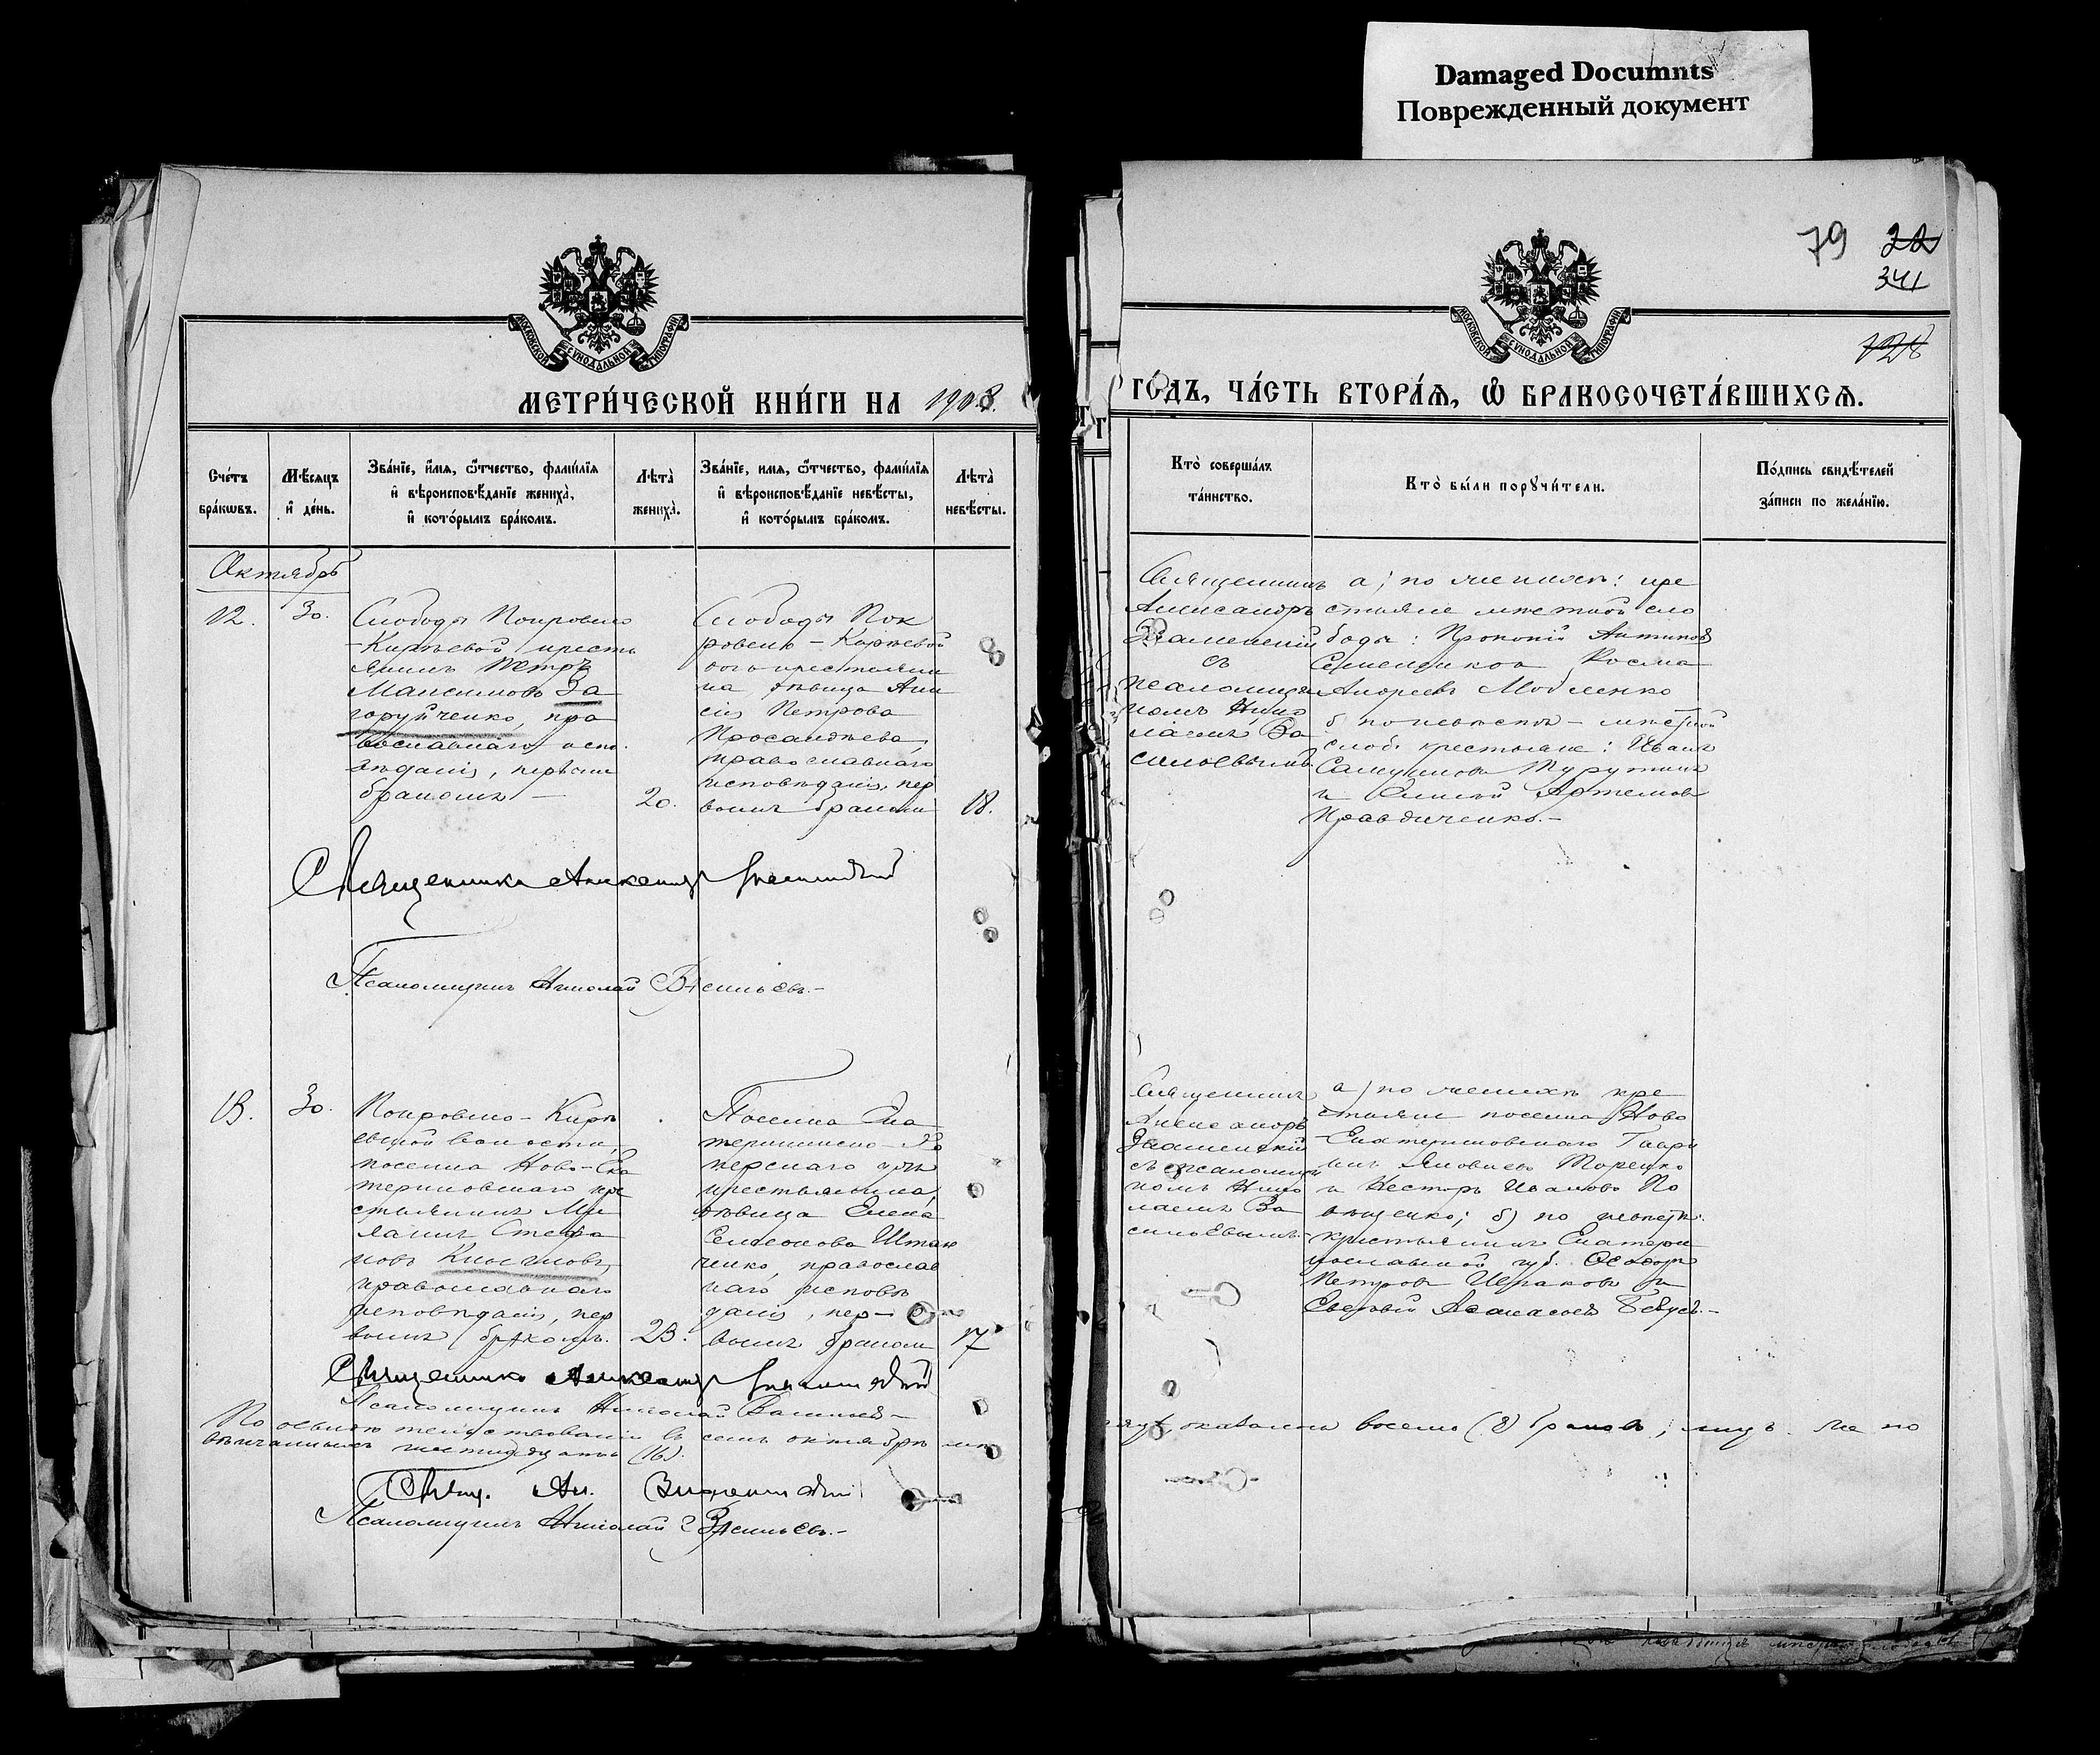 Damaged Documnts
Поврежденный документ
79
341
128
МОСКОВСКОЙ СѴНОДАЛЬНОЙ ТИПОГРАФІИ
МОСКОВСКОЙ СѴНОДАЛЬНОЙ ТИПОГРАФІИ
МЕТРИ́ЧЕСКОЙ КНИ́ГИ НА 1903.
ГО́ДЪ, ЧА́СТЬ ВТОРА́Ѧ, Ѽ БРАКОСОЧЕТА́ВШИХСѦ.
Сче́тъ
бра́кѡвъ.
Мѣ́сѧцъ
и҆ де́нь.
Зва́нїе, и҆́мѧ, ѻ҆́тчество, фами́лїѧ
и҆ вѣроисповѣ́данїе жениха̀,
и҆ кото́рымъ бра́комъ.
Лѣта̀
жениха̀.
Зва́нїе, имѧ, ѻ҆́тчество, фами́лїѧ
и҆ вѣроисповѣ́данїе невѣ́сты,
и҆ кото́рымъ бра́комъ.
Лѣта̀
невѣ́сты.
Кто̀ соверша́лъ
та́инство.
Кто̀ бы́ли порꙋчи́тели.
По́дпись свидѣ́телей
за́писи по жела́нїю.
Октябрь
12.
30.
Слободы Покровско
-Киреевой кресть
янинъ Петръ
Максимовъ За
горуйченко, пра
вославнаго испо.
вѣданія, первымъ
бракомъ —
20.
Слободы Пок
ровско - Киреевой
дочь крестьяни
на дѣвица Ани
сія Петрова
православнаго
исповѣданія, пер
вымъ бракомъ
18.
Священникъ
Александръ
Знаменскій
съ
псаломщи
комъ Нико
лаемъ Ва
сильевымъ
а) по женихѣ: кре
стьяне мѣстной сло
боды: Прокопій Антиповъ
Косма
Андреевъ
б) по невѣстѣ - мѣстной
слоб. крестьяне: Иванъ
и Артемовъ
Правдиченко.-
Священникъ Александръ Знаменскій
Псаломщикъ Николай Васильевъ.-
13.
30.
Покровско - Кире
евской волости,
поселка Ново-Ека
териновскаго кре
стьянинъ
Стефа
новъ
православнаго
исповѣданія, пер
вымъ бракомъ.
23.
Поселка Ека
терининско - Хо
перскаго дочь
крестьянина,
дѣвица Елена
Семенова
православ
наго исповѣ
данія, пер-
вымъ бракомъ
17
Священникъ
Александръ
Знаменскій
съ псаломщи
комъ Нико
лаемъ Ва
сильевымъ.-
а) по женихѣ кре
стьяне поселка Ново
-Екатериновскаго Гаври
илъ Яковлевъ
и Несторъ Ивановъ По
б) по невѣстѣ:
крестьянинъ Екатери
нославской губ. Ѳедоръ
Петровъ и
Евсевій Аѳанасьевъ
Священникъ Александръ Знаменскій
Псаломщикъ Николай Васильевъ-
По освидѣтельствованіи въ семъ октябрѣ мѣ
сяцѣ, оказалось восемь (8) браковъ; лицъ же по
вѣнчанныхъ шестнадцать (16).
Свящ. Ал. Знаменскій
Псаломщикъ Николай Васильевъ.-